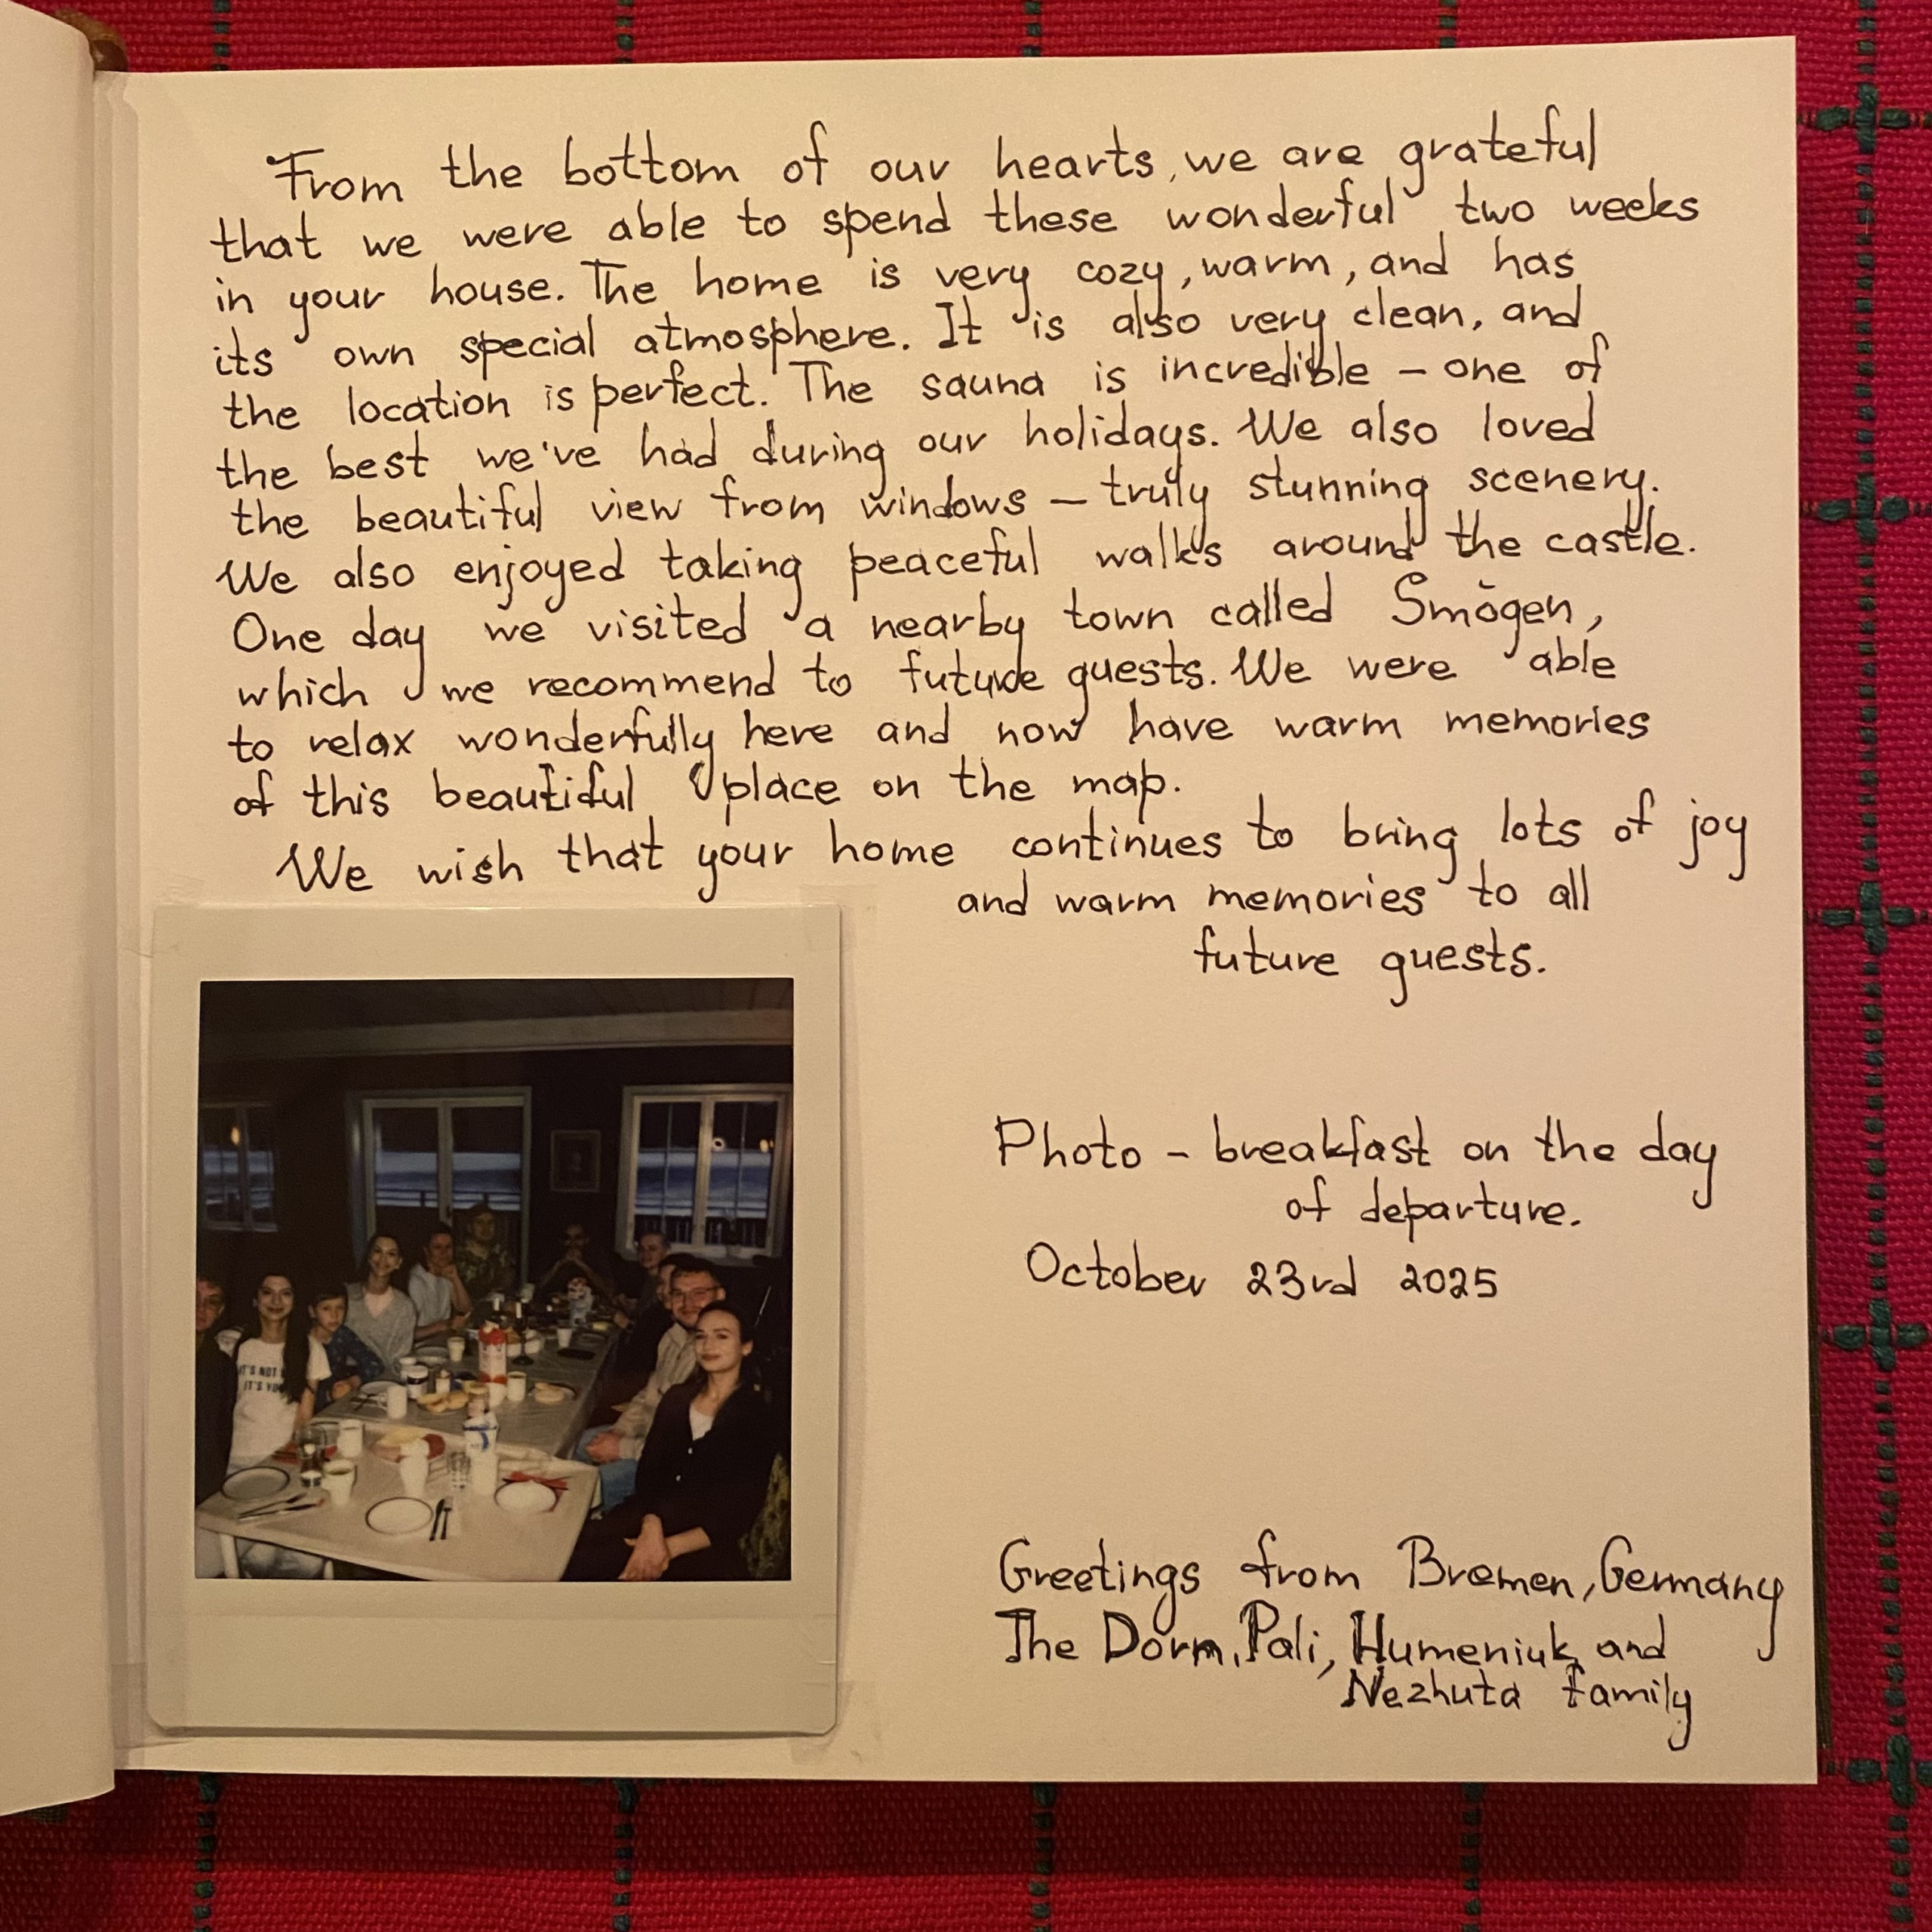 From the bottom of our hearts, we are grateful
that we were able to spend these wonderful two weeks
in your house. The home is very cozy, warm, and has
its own special atmosphere. It is also very clean, and
the location is perfect. The sauna is incredible – one of
the best we've had during our holidays. We also loved
the beautiful view from windows – truly stunning scenery.
We also enjoyed taking peaceful walks around the castle.
One day we visited a nearby town called Smögen,
which we recommend to future guests. We were able
to relax wonderfully here and now have warm memories
of this beautiful place on the map.
We wish that your home continues to bring lots of joy
and warm memories to all
future guests.
Photo – breakfast on the day
of departure.
October 23rd 2025
IT'S NOT
IT'S YOU
Greetings from Bremen, Germany
The Dorn, Pali, Humeniuk and
Nezhuta family